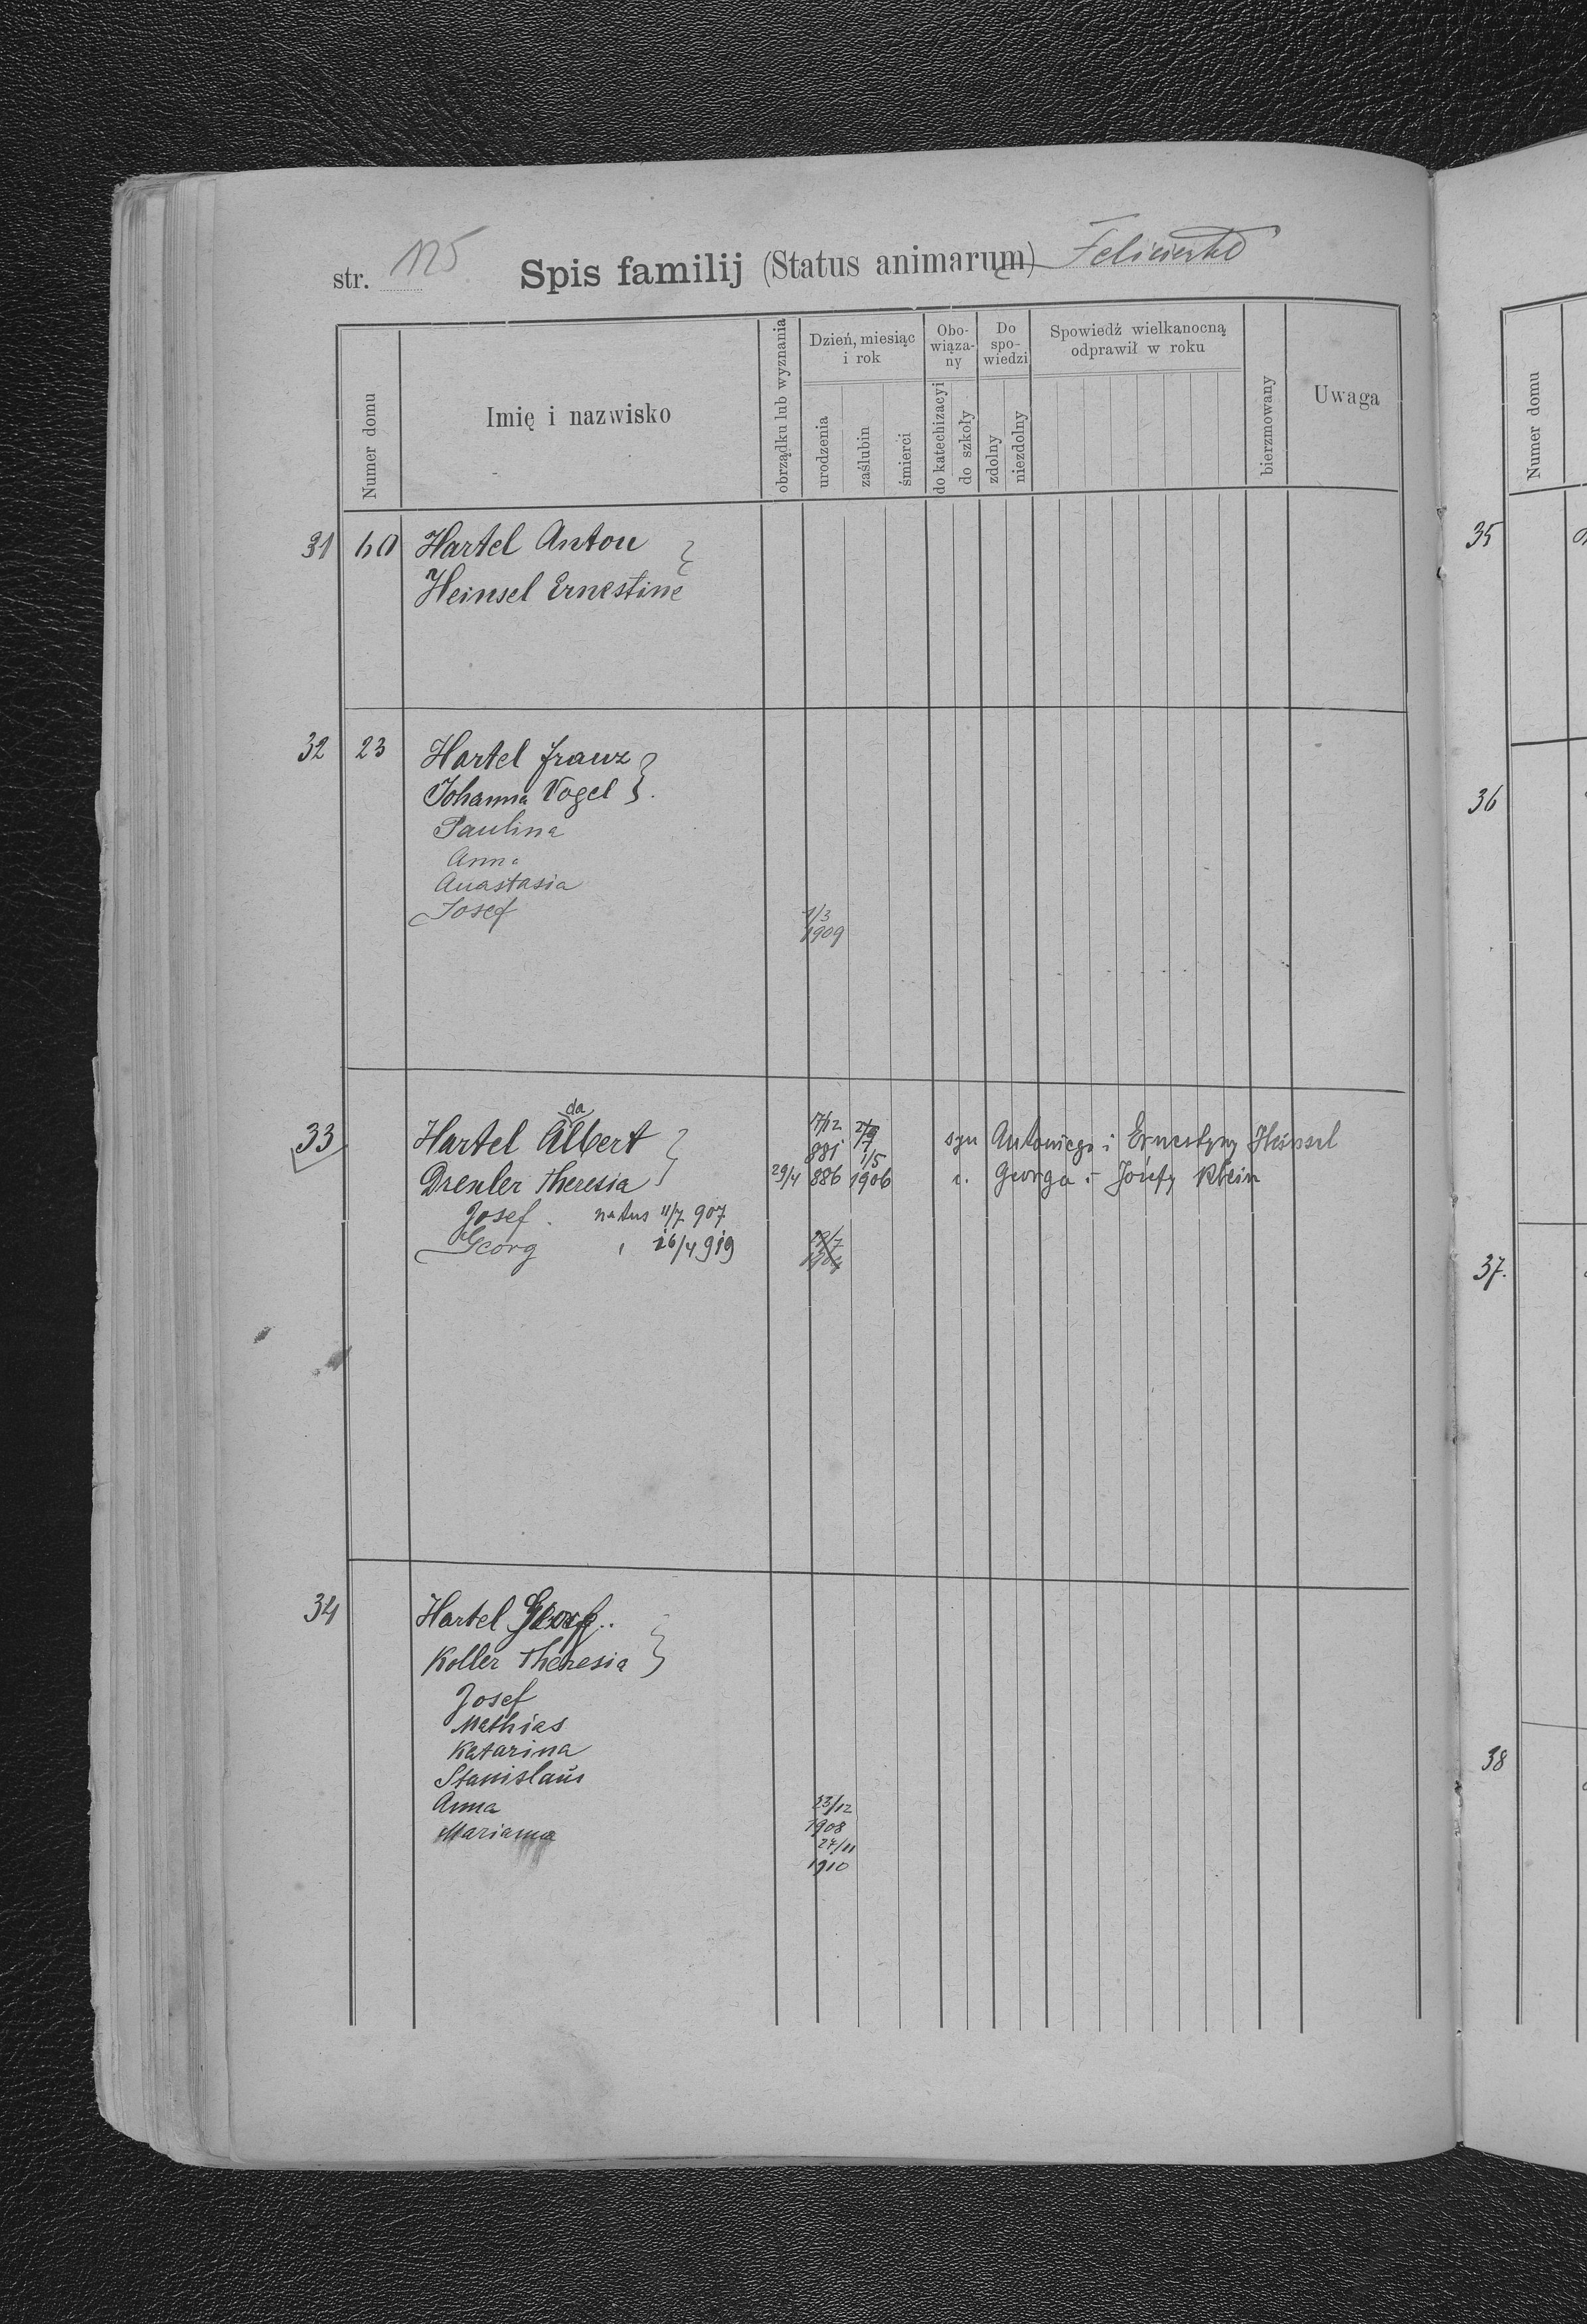 str. 125 Spis familij (Status animarum)
Numer domu
Imię i nazwisko
obrządku lub wyznania
Dzień, miesiąc i rok
urodzenia
zaślubin
śmierci
Obo-wiąza-ny
do katechizacyi
do szkoły
Do spo-wiedzi
zdolny
niezdolny
Spowiedź wielkanocną odprawił w roku
bierzmowany
Uwaga
31 60 Hartel Anton
Heinsel Ernestine
32 23 Hartel Franz
Johanna Vogel
Paulina
Anna
Anastasia
Josef 1/3
1909
33 Hartel Albert 17/12 881 syn Antoniego i Ernestyny Heinsel
da
Drexler Theresia 29/4 886 1/5 1906 c. Georga i Józefy Klein
Josef natus 11/7 907
Georg 16/4 919
34 Hartel
Koller Theresia
Josef
Mathias
Katarina
Stanislaus
Anna 23/12
1908
Marianna 27/11
1910
Numer domu
35
36
37.
38